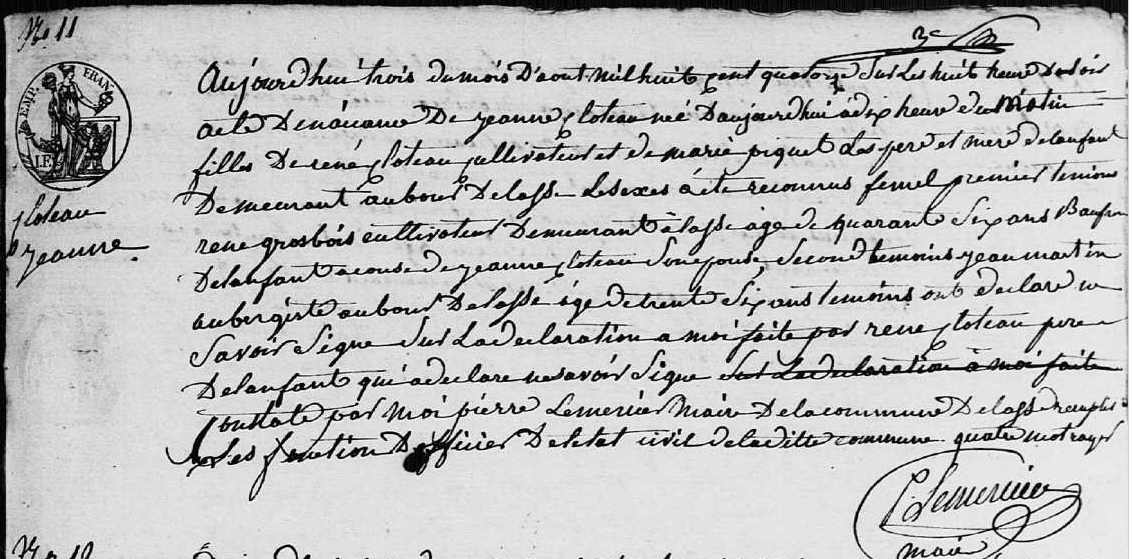 No 11
3e
EMP. FRAN
LE
Cloteau
jeanne
Aujourd'hui trois du mois D'aout mil huit cent quatorze sur Les huit heure Du soir
acte De naicance De jeanne Cloteau neé D'aujourd'hui à dix heure du matin
filles De rené Cloteau cultivateur et de marie piquet Les pere et mere de lanfant
Demeurant au bour De lasse Lesexes à été reconnus femel premier temoins
rene grosbois cultivateur Demeurant à lasse age de quarant six ans
De lanfant acouse de jeanne Cloteau son epouse second temoins jean martin
aubergiste au bour De lasse age de trente six ans temoins ont declare ne
savoir signe sur La declaration a moi faite par rene Cloteau pere
De lanfant qui a declare ne savoir signe sur La declaration à moi faite
Constate par moi pierre Lemercier Maire De la commune De lasse
Les fonction D'officier De letat civil de la ditte commune quatre mot rayes
P. Lemercier
maire
No 12